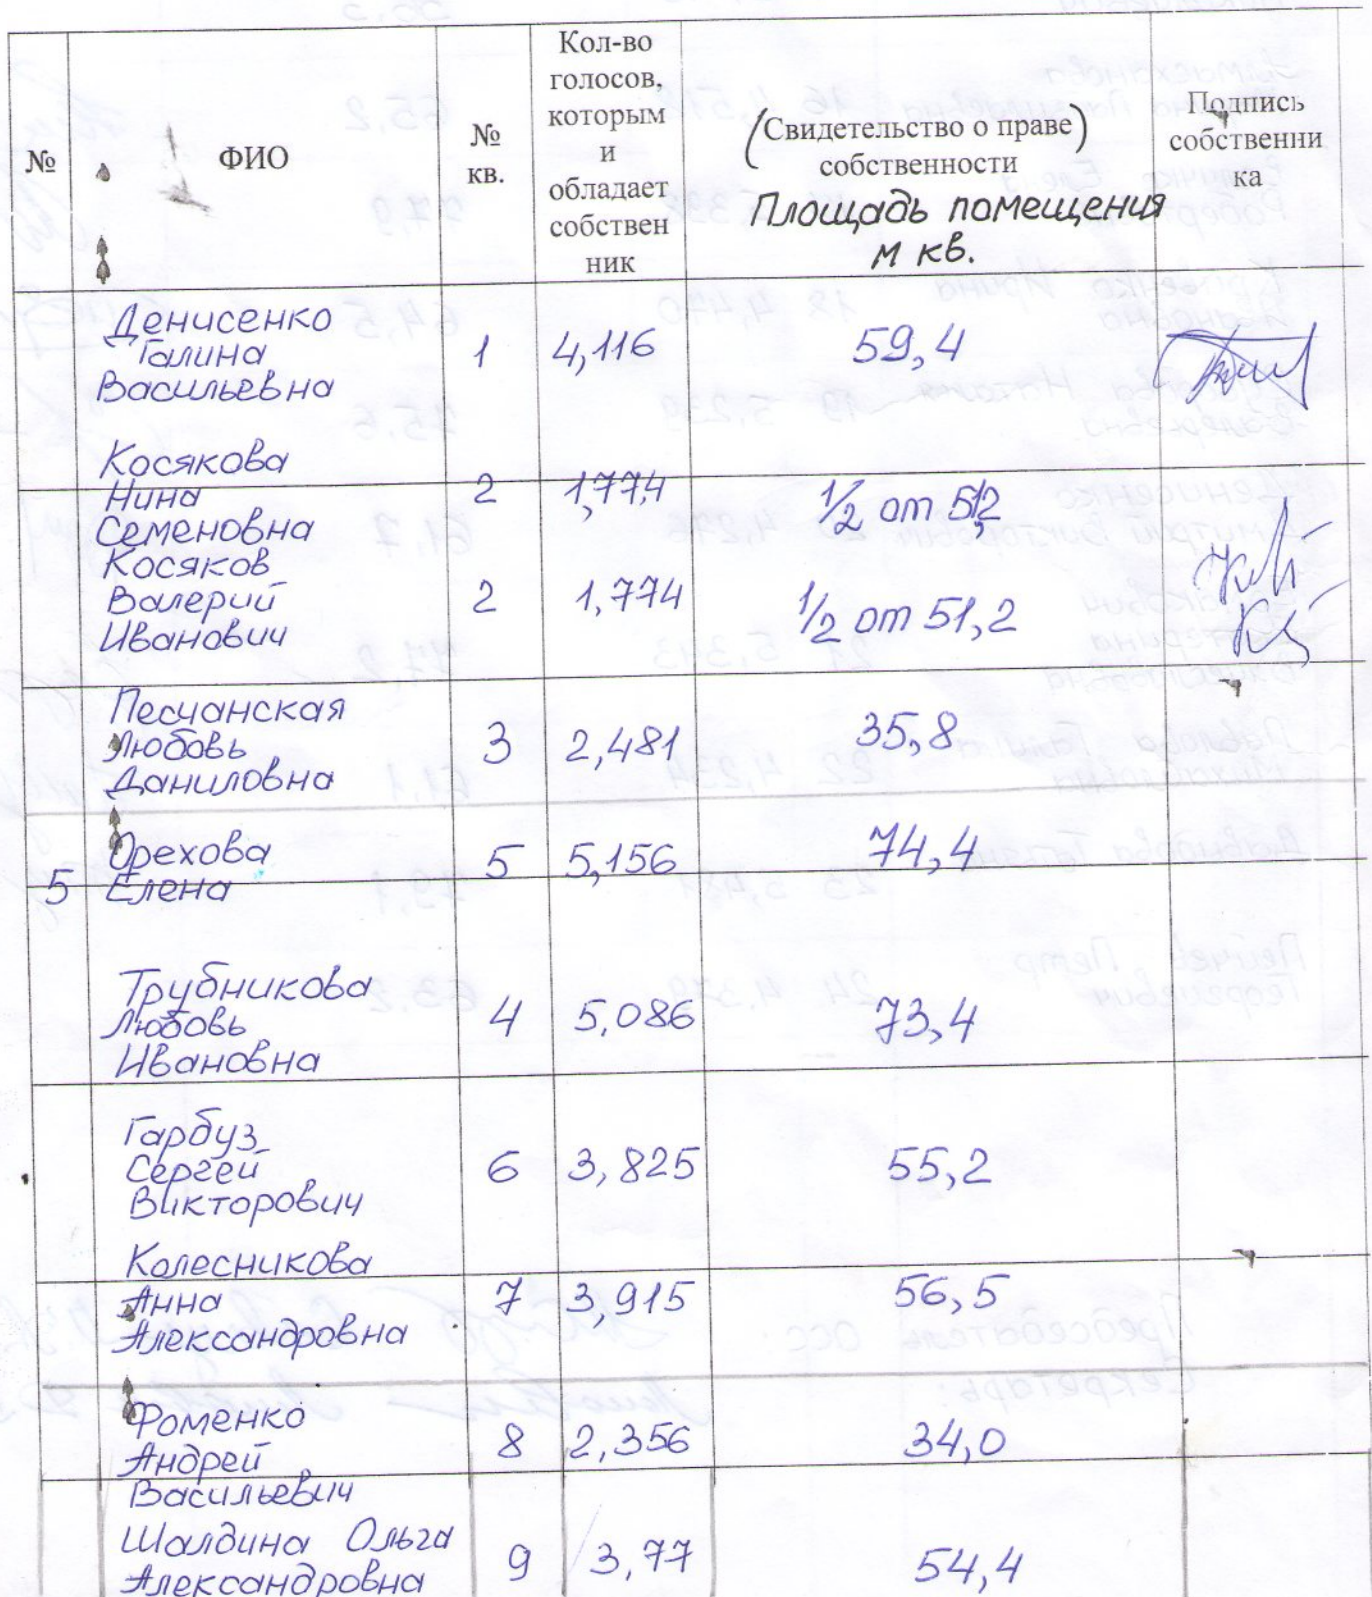 №
ФИО
№
кв.
Кол-во
голосов,
которым
и
обладает
собствен
ник
(Свидетельство о праве)
собственности
Площадь помещения
м кв.
Подпись
собственни
ка
Денисенко
Галина
Васильевна
1 4,116 59,4
Косякова
Нина
Семеновна
2 1,774 1/2 от 51,2
Косяков
Валерий
Иванович
2 1,774 1/2 от 51,2
Песчанская
Любовь
Даниловна
3 2,481 35,8
5
Орехова
Елена
5 5,156 74,4
Трубникова
Любовь
Ивановна
4 5,086 73,4
Гарбуз
Сергей
Викторович
6 3,825 55,2
Колесникова
Анна
Александровна
7 3,915 56,5
Фоменко
Андрей
Васильевич
8 2,356 34,0
Шалдина Ольга
Александровна
9 3,77 54,4